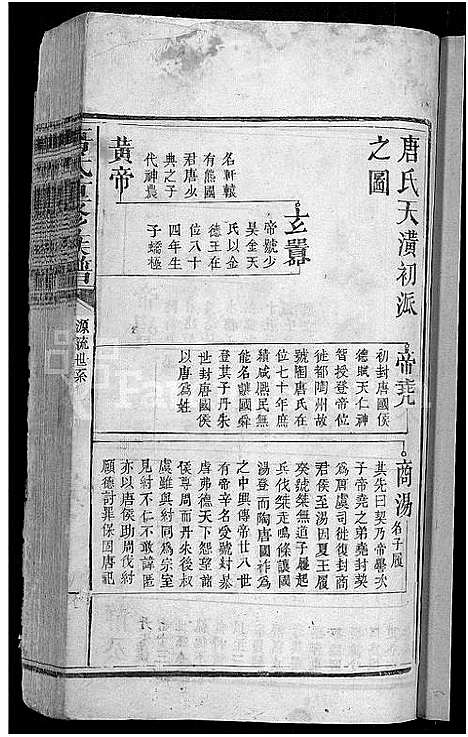 唐氏天潢初派
之圖
黃帝
名軒轅
有熊國
君唐少
典之子
代神農
玄囂
帝號少
昊金天
氏以金
德王在
位八十
四年生
子蟜極
帝堯
初封唐國侯
德賦天仁神
智授登帝位
徙都陶州故
號陶唐氏在
位七十年庶
績咸熙民無
能名讓國舜
登其子丹朱
世封唐國侯
以唐為姓
商湯名子履
其先曰契乃帝嚳次
子帝堯之弟堯封契
為唐虞司徒復封商
君侯至湯因夏王履
癸號桀無道子履起
兵伐桀走鳴條讓國
湯登而陶唐國祚為
之中興傳帝廿八世
有帝辛名受號紂暴
虐弗德天下怨望諸
侯尊周而丹朱後叔
虞雖與紂同為宗室
見紂不仁不敢諱匿
亦以唐侯助周伐紂
顧德討罪保固唐祀
唐氏重修族譜
源流世系